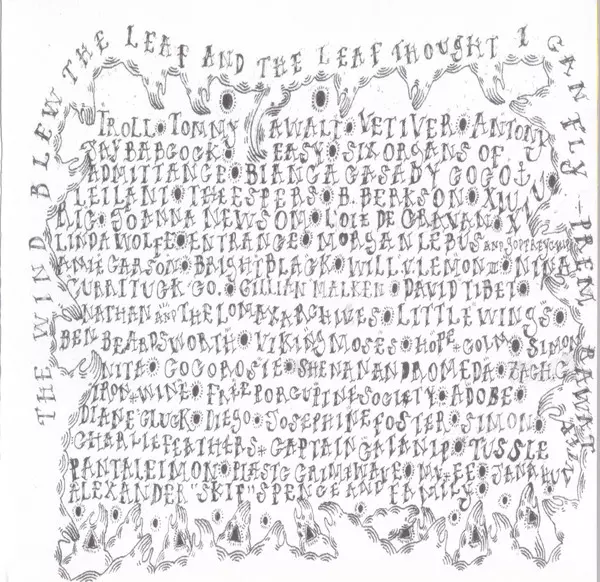 THE WIND BLEW THE LEAF AND THE LEAF THOUGHT I CAN FLY – PREM RAWAT
TROLL • TOMMY AWALT • VETIVER • ANTONY
JAY BABCOCK • EASY • SIX ORGANS OF
ADMITTANCE • BIANCA CASADY COCO
LEILANI • THE ESPERS • B. BERKSON •
RIG • JOANNA NEWSOM • LOIE DE GRAVAN •
LINDA WOLFE • ENTRANCE • MORGAN LEBUS AND
GARSON • BRIGHTBLACK • WILL V. LEMON III • NINA
CURRITUCK CO. • GILLIAN MALKEN • DAVID TIBET •
NATHAN AND THE LOMAX ARCHIVES • LITTLE WINGS •
BEN BEARDSWORTH • VIKING MOSES • HOPE + COLN • SIMON
NITA • COCOROSIE • SHENANDROMEDA • ZACH C.
IRON + WINE • FREE PORCUPINE SOCIETY • ADOBE •
DIANE CLUCK • DIEGO • JOSEPHINE FOSTER • SIMON •
CHARLIE FEATHERS + CAPTAIN CATANIP • TUSSLE
PANTALEIMON • PLASTC CRIMEWAVE • MY + EE • JANA
ALEXANDER "SKIP" SPENCE AND FAMILY •